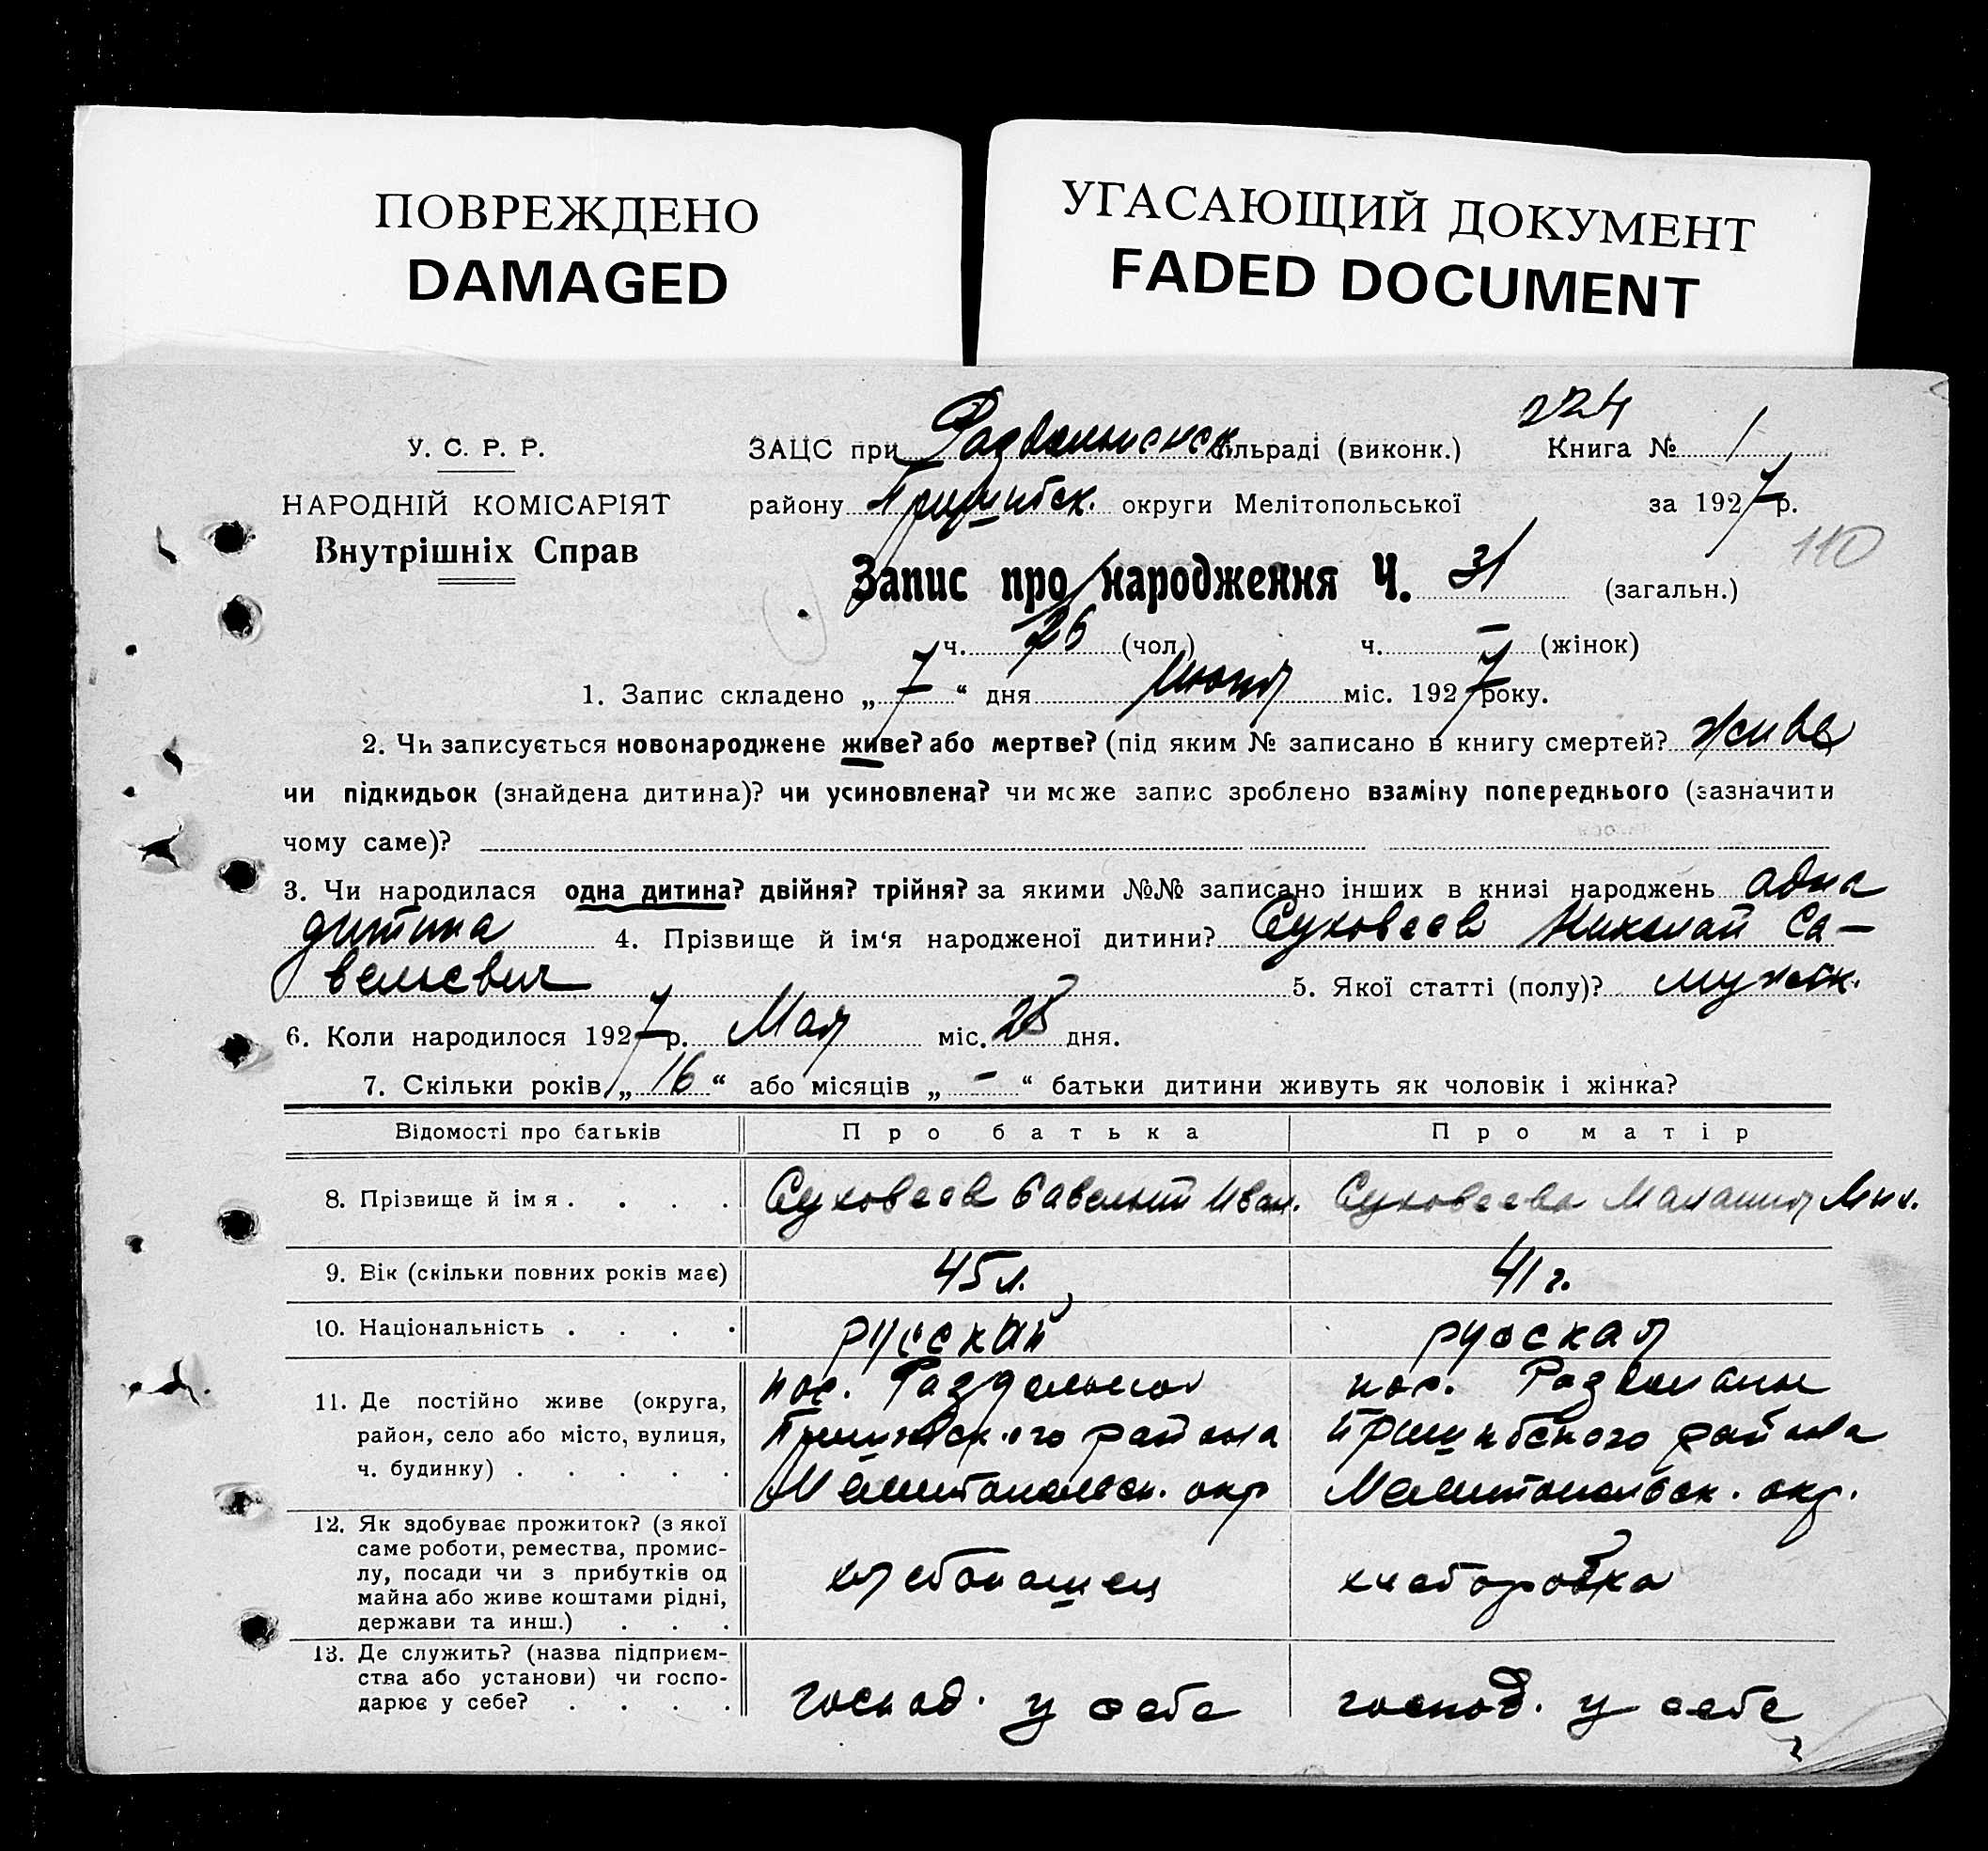 ПОВРЕЖДЕНО
DAMAGED
УГАСАЮЩИЙ ДОКУМЕНТ
FADED DOCUMENT
224
У. С. Р. Р.
ЗАЦС при сільраді (виконк.) Книга № 1
НАРОДНІЙ КОМІСАРІЯТ
району Пришибск. округи Мелітопольської за 1927 р.
Внутрішніх Справ
110
Запис про народження Ч. 31 (загальн.)
ч. (чол.) ч. – (жінок)
1. Запис складено „ 7 “ дня міс. 1927 року.
2. Чи записується новонароджене живе? або мертве? (під яким № записано в книгу смертей? живе
чи підкидьок (знайдена дитина)? чи усиновлена? чи може запис зроблено взаміну попереднього (зазначити
чому саме)?
3. Чи народилася одна дитина? двійня? трійня? за якими №№ записано інших в книзі народжень одна
дитина 4. Прізвище й ім‘я народженої дитини? Суховеев Николай Са–
вельевич 5. Якої статті (полу)? мужск.
6. Коли народилося 1927 р. Мая міс. дня.
7. Скільки років „ 16 “ або місяців „ – “ батьки дитини живуть як чоловік і жінка?
Відомості про батьків Про батька Про матір
8. Прізвище й імя . . . . Суховеев Савелий Иван. Суховеева Малания
9. Вік (скільки повних років має) 45 л. 41 г.
10. Національність . . . . русский русская
11. Де постійно живе (округа, пос.
район, село або місто, вулиця, Пришибского района Пришибского района
ч. будинку) . . . . . Мелитопольск. окр Мелитопольск. окр.
12. Як здобуває прожиток? (з якої
саме роботи, ремества, промис-
лу, посади чи з прибутків од хлебопашец хлеборобка
майна або живе коштами рідні,
держави та инш.) . . .
13. Де служить? (назва підприєм-
ства або установи) чи госпо-
дарює у себе? . . . . господ. у себе господ. у себе